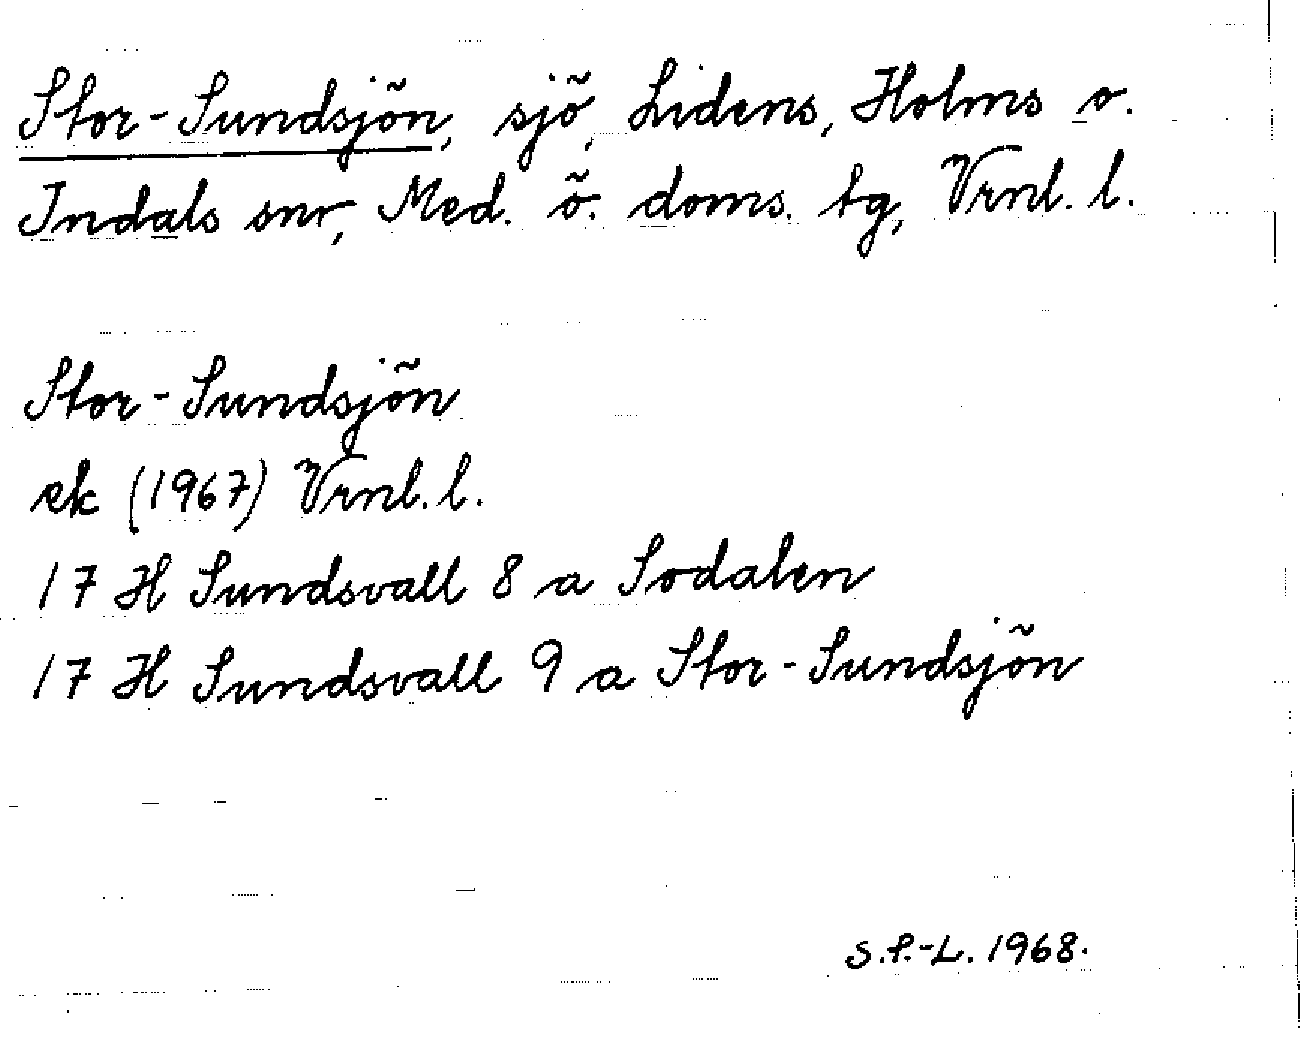 Stor-Sundsjön, sjö, Lidens, Holms o.
Indals snr, Med. ö. doms. tg, Vrnl. l.
Stor-Sundsjön
ek (1967) Vrnl. l.
17 H Sundsvall 8 a Sodalen
17 H Sundsvall 9 a Stor-Sundsjön
S.P.-L. 1968.